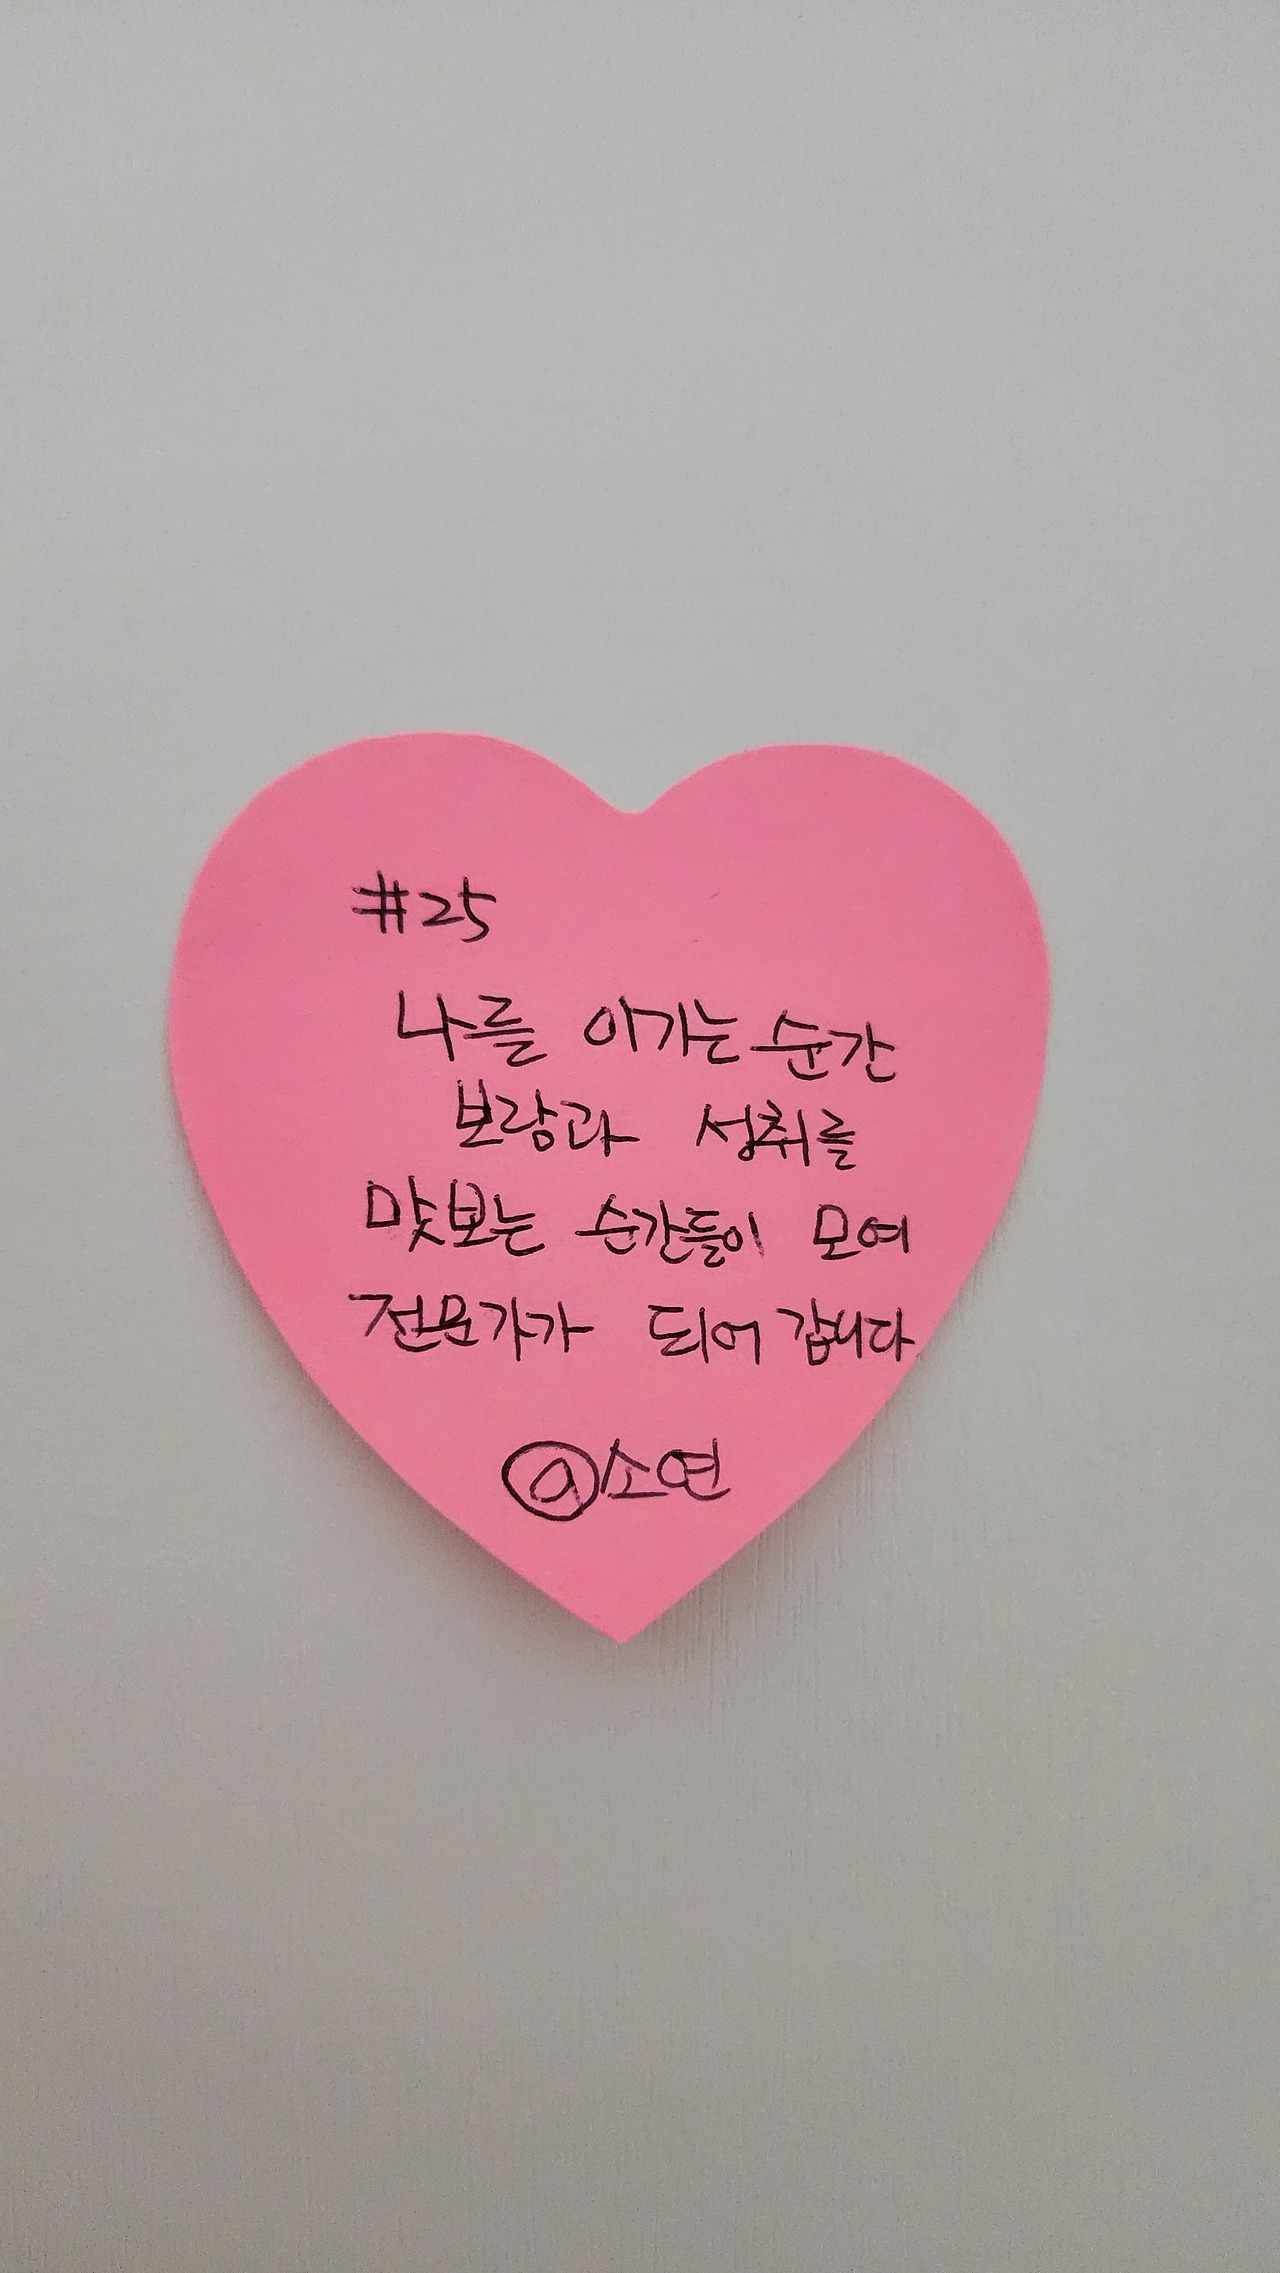 #25
나를 이기는 순간
보람과 성취를
맛보는 순간들이 모여
전문가가 되어 갑니다
@소연